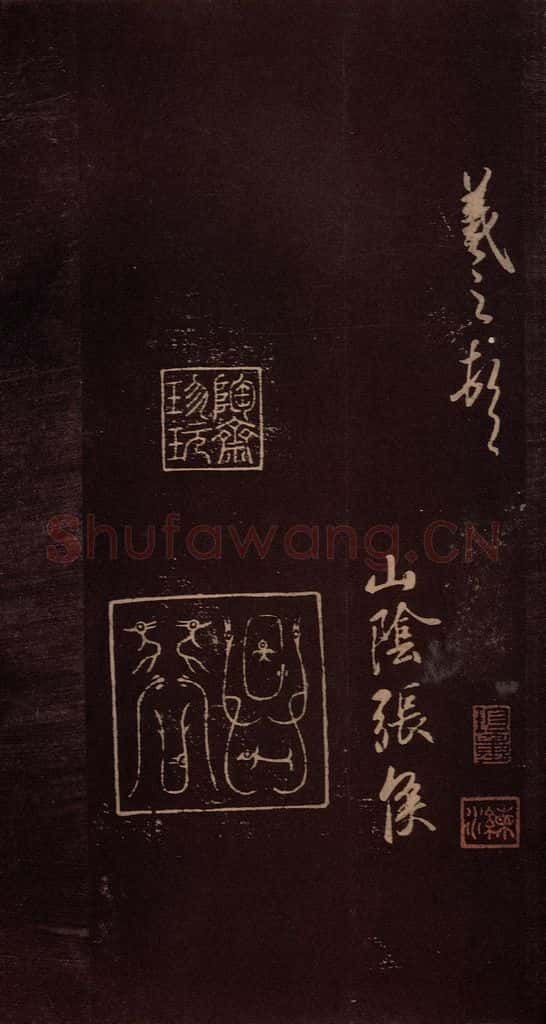 羲之頓首
山陰張侯
陶齋
珍玩
Shufawang.CN